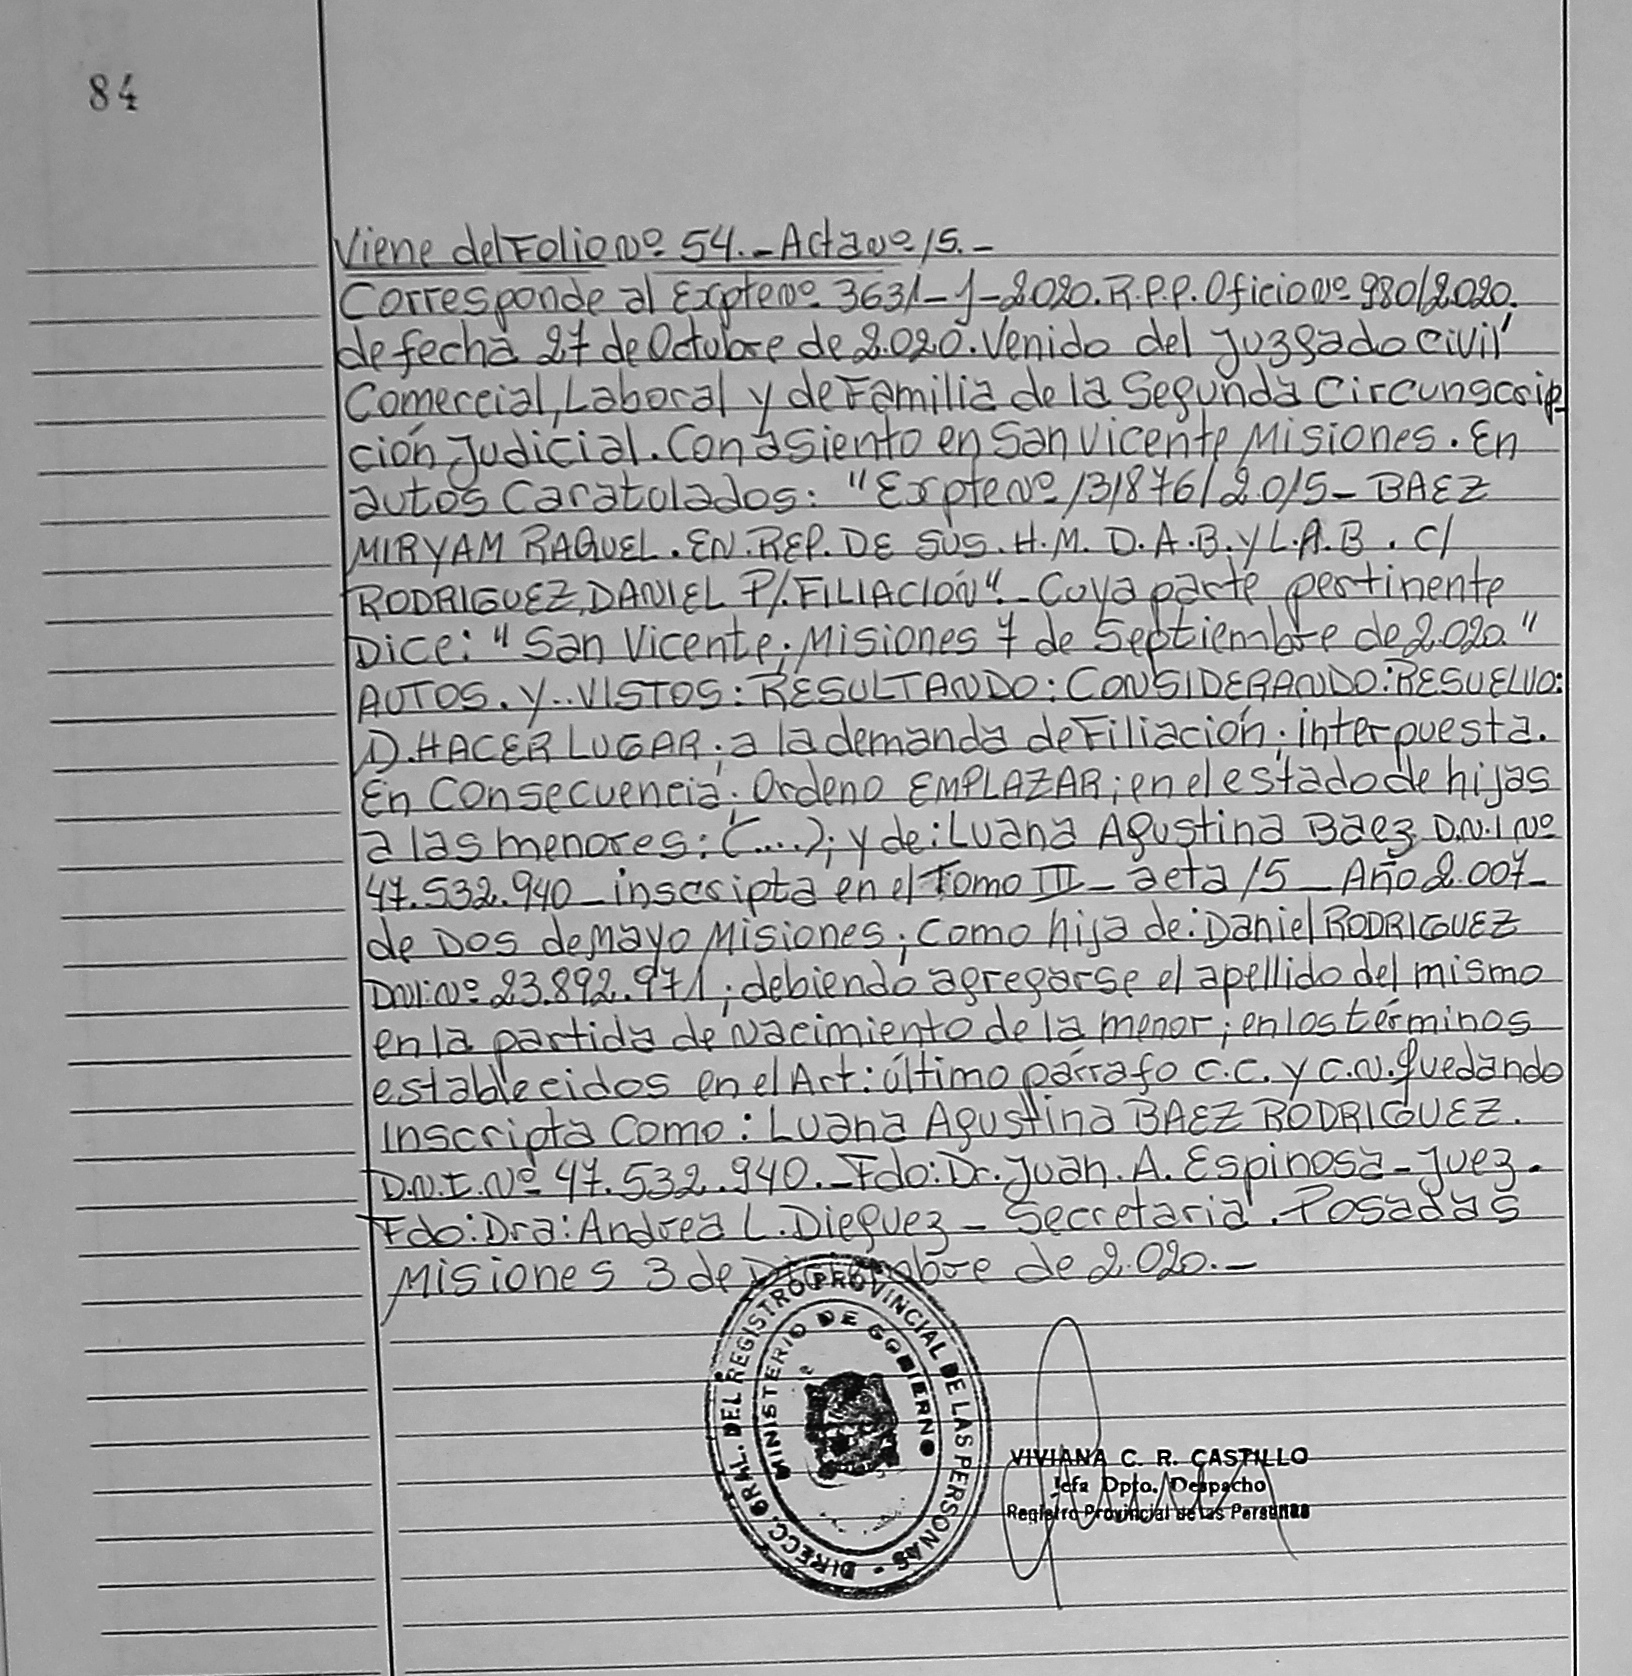 84
Viene del Folio Nº 54.- Acta Nº 15.-
Corresponde al Expte Nº 3631-J-2020. R.P.P. Oficio Nº 980/2.020.
de fecha 27 de Octubre de 2.020. Venido del Juzgado Civil
Comercial, Laboral y de Familia de la Segunda Circunscrip
ción Judicial. Con asiento en San Vicente Misiones. En
autos Caratulados: "Expte Nº 131876/2.015- BAEZ
MIRYAM RAQUEL. EN. REP. DE SUS. H.M. D.A.B. y L.A.B. C/
RODRIGUEZ, DANIEL P/. FILIACIÓN".- Cuya parte pertinente
Dice: "San Vicente; Misiones 7 de Septiembre de 2.020."
AUTOS. Y.. VISTOS: RESULTANDO: CONSIDERANDO: RESUELVO:
1). HACER LUGAR; a la demanda de Filiación; interpuesta.
En Consecuencia: Ordeno EMPLAZAR; en el estado de hijas
a las menores: (....); y de: Luana Agustina Baez D.N.I Nº
47.532.940 - inscripta en el Tomo III - acta 15 - Año 2.007-
de Dos de Mayo Misiones; Como hija de: Daniel RODRIGUEZ
DNI: Nº 23.892.971; debiendo agregarse el apellido del mismo
en la partida de Nacimiento de la menor; en los términos
establecidos en el Art: último párrafo C.C. y C.N. Quedando
Inscripta Como: Luana Agustina BAEZ RODRIGUEZ.
D.N.I. Nº 47.532.940.- Fdo: Dr. Juan. A. Espinosa - Juez.
Fdo: Dra: Andrea L. Dieguez - Secretaria. Posadas
Misiones 3 de Diciembre de 2.020.-
DIRECC. GRAL. DEL REGISTRO PROVINCIAL DE LAS PERSONAS
MINISTERIO DE GOBIERNO
VIVIANA C. R. CASTILLO
Jefa Dpto. Despacho
Registro Provincial de las Personas